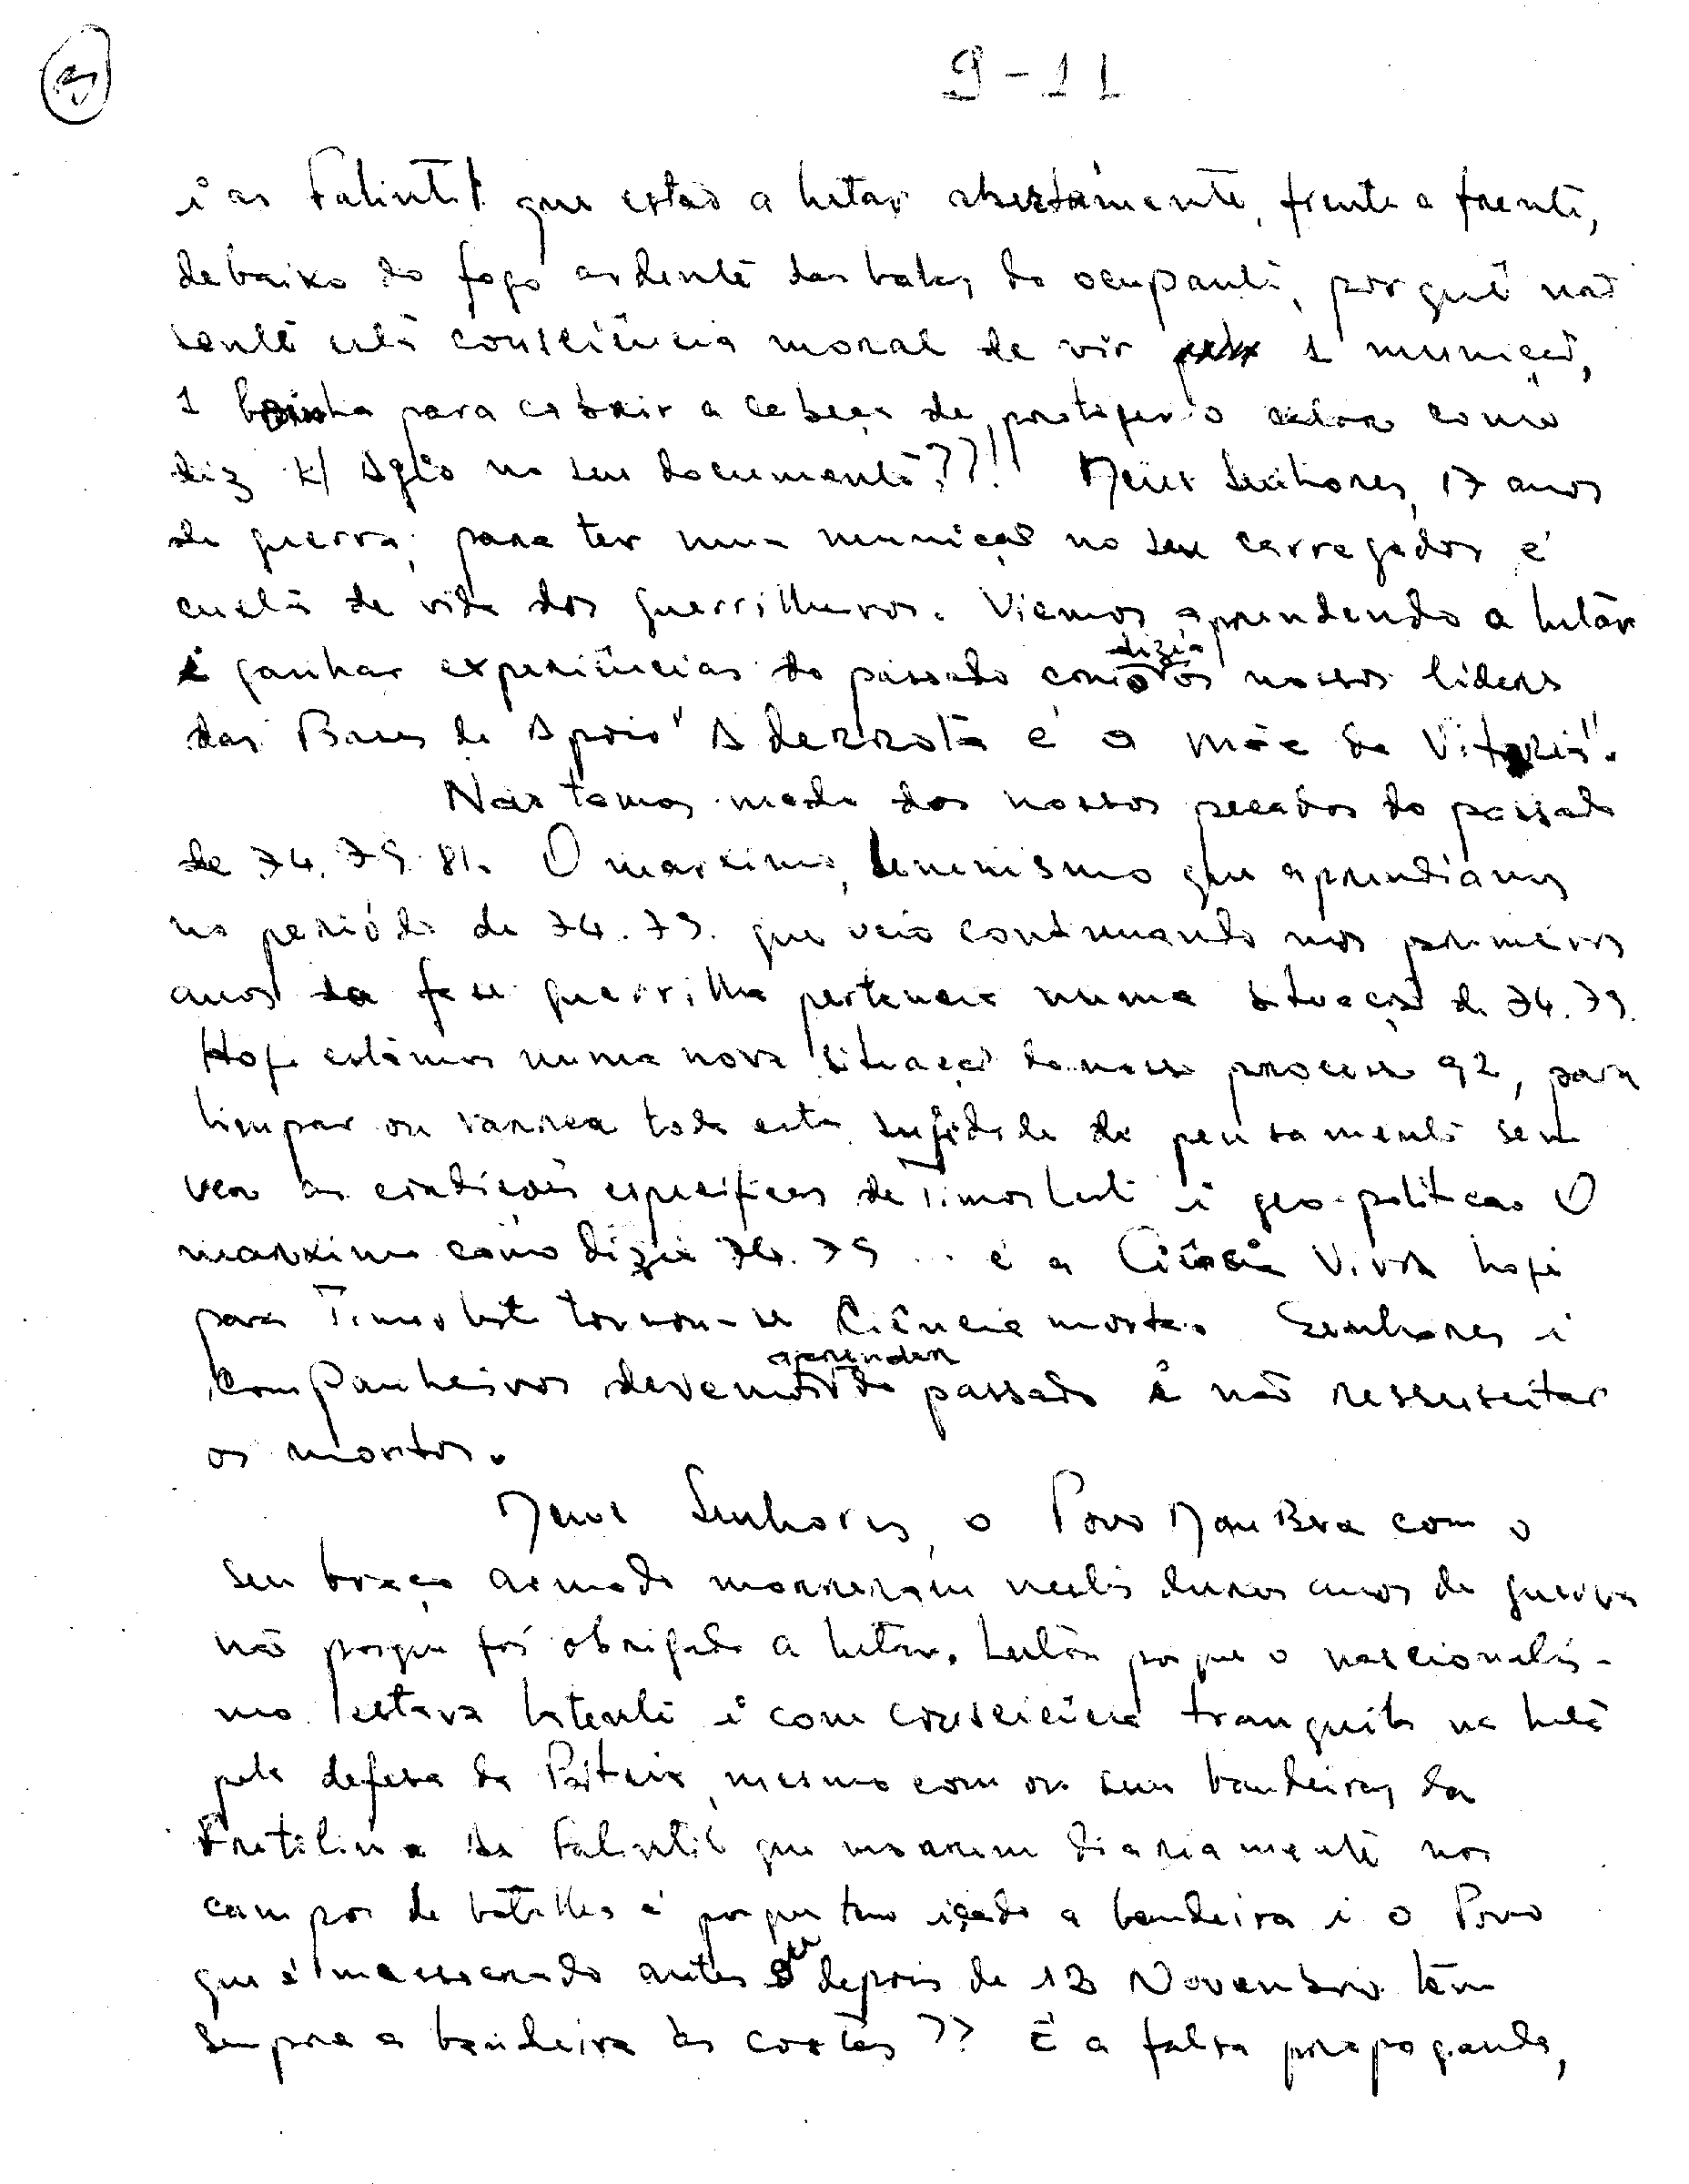 9-11
i as Falintil que estão a lutar abertamente, frente a frente,
debaixo do fogo ardente das balas do ocupante, porquê não
sente esta consciência moral de vir 1 munição,
1 para cobrir a cabeça de proteger o calor como
diz K/ Agio no seu documento,??!! Meus Senhores, 17 anos
de guerra; para ter uma munição no seu carregador é
custa de vida dos guerrilheiros. Viemos aprendendo a lutar
e ganhar experiências do passado como dizia os nossos liders
das Bases de Apoio "A derrota é a mãe da Vitoria".
Não temos medo dos nossos pecados do passado
de 74.79.81. O marximo, leninismo que aprendiamos
no periódo de 74.79. que veio continuando nos primeiros
anos da fase guerrilha pertencia numa situação de 74.79.
Hoje estâmos numa nova situação do nosso processo 92, para
limpar ou varrer toda esta sujidade de pensamento sem
ver as condições especificas de Timor Leste i geo-politicas O
marximo como dizia 74.79 ... é a Ciência Viva hoje
para Timor Leste tornou-se Ciência morta. Senhores i
Companheiros devemos aprender do passado e não ressuscitar
os mortos.
Meus Senhores, o Povo MauBere com o
seu braço armado morreram nestes duros anos de guerra
não porque foi obrigado a lutar. Lutar porque o nascionalis-
mo estava latente i com consciência tranquila na luta
pela defesa da Pátria, mesmo com ou sem bandeiras da
Fretilin e da Falintil que morrem diariamente nos
campos de batalhas é porque tem içado a bandeira i o Povo
que é massacrado antes ou depois de 12 Novembro têm
sempre a bandeira às costas ?? É a falsa propaganda,